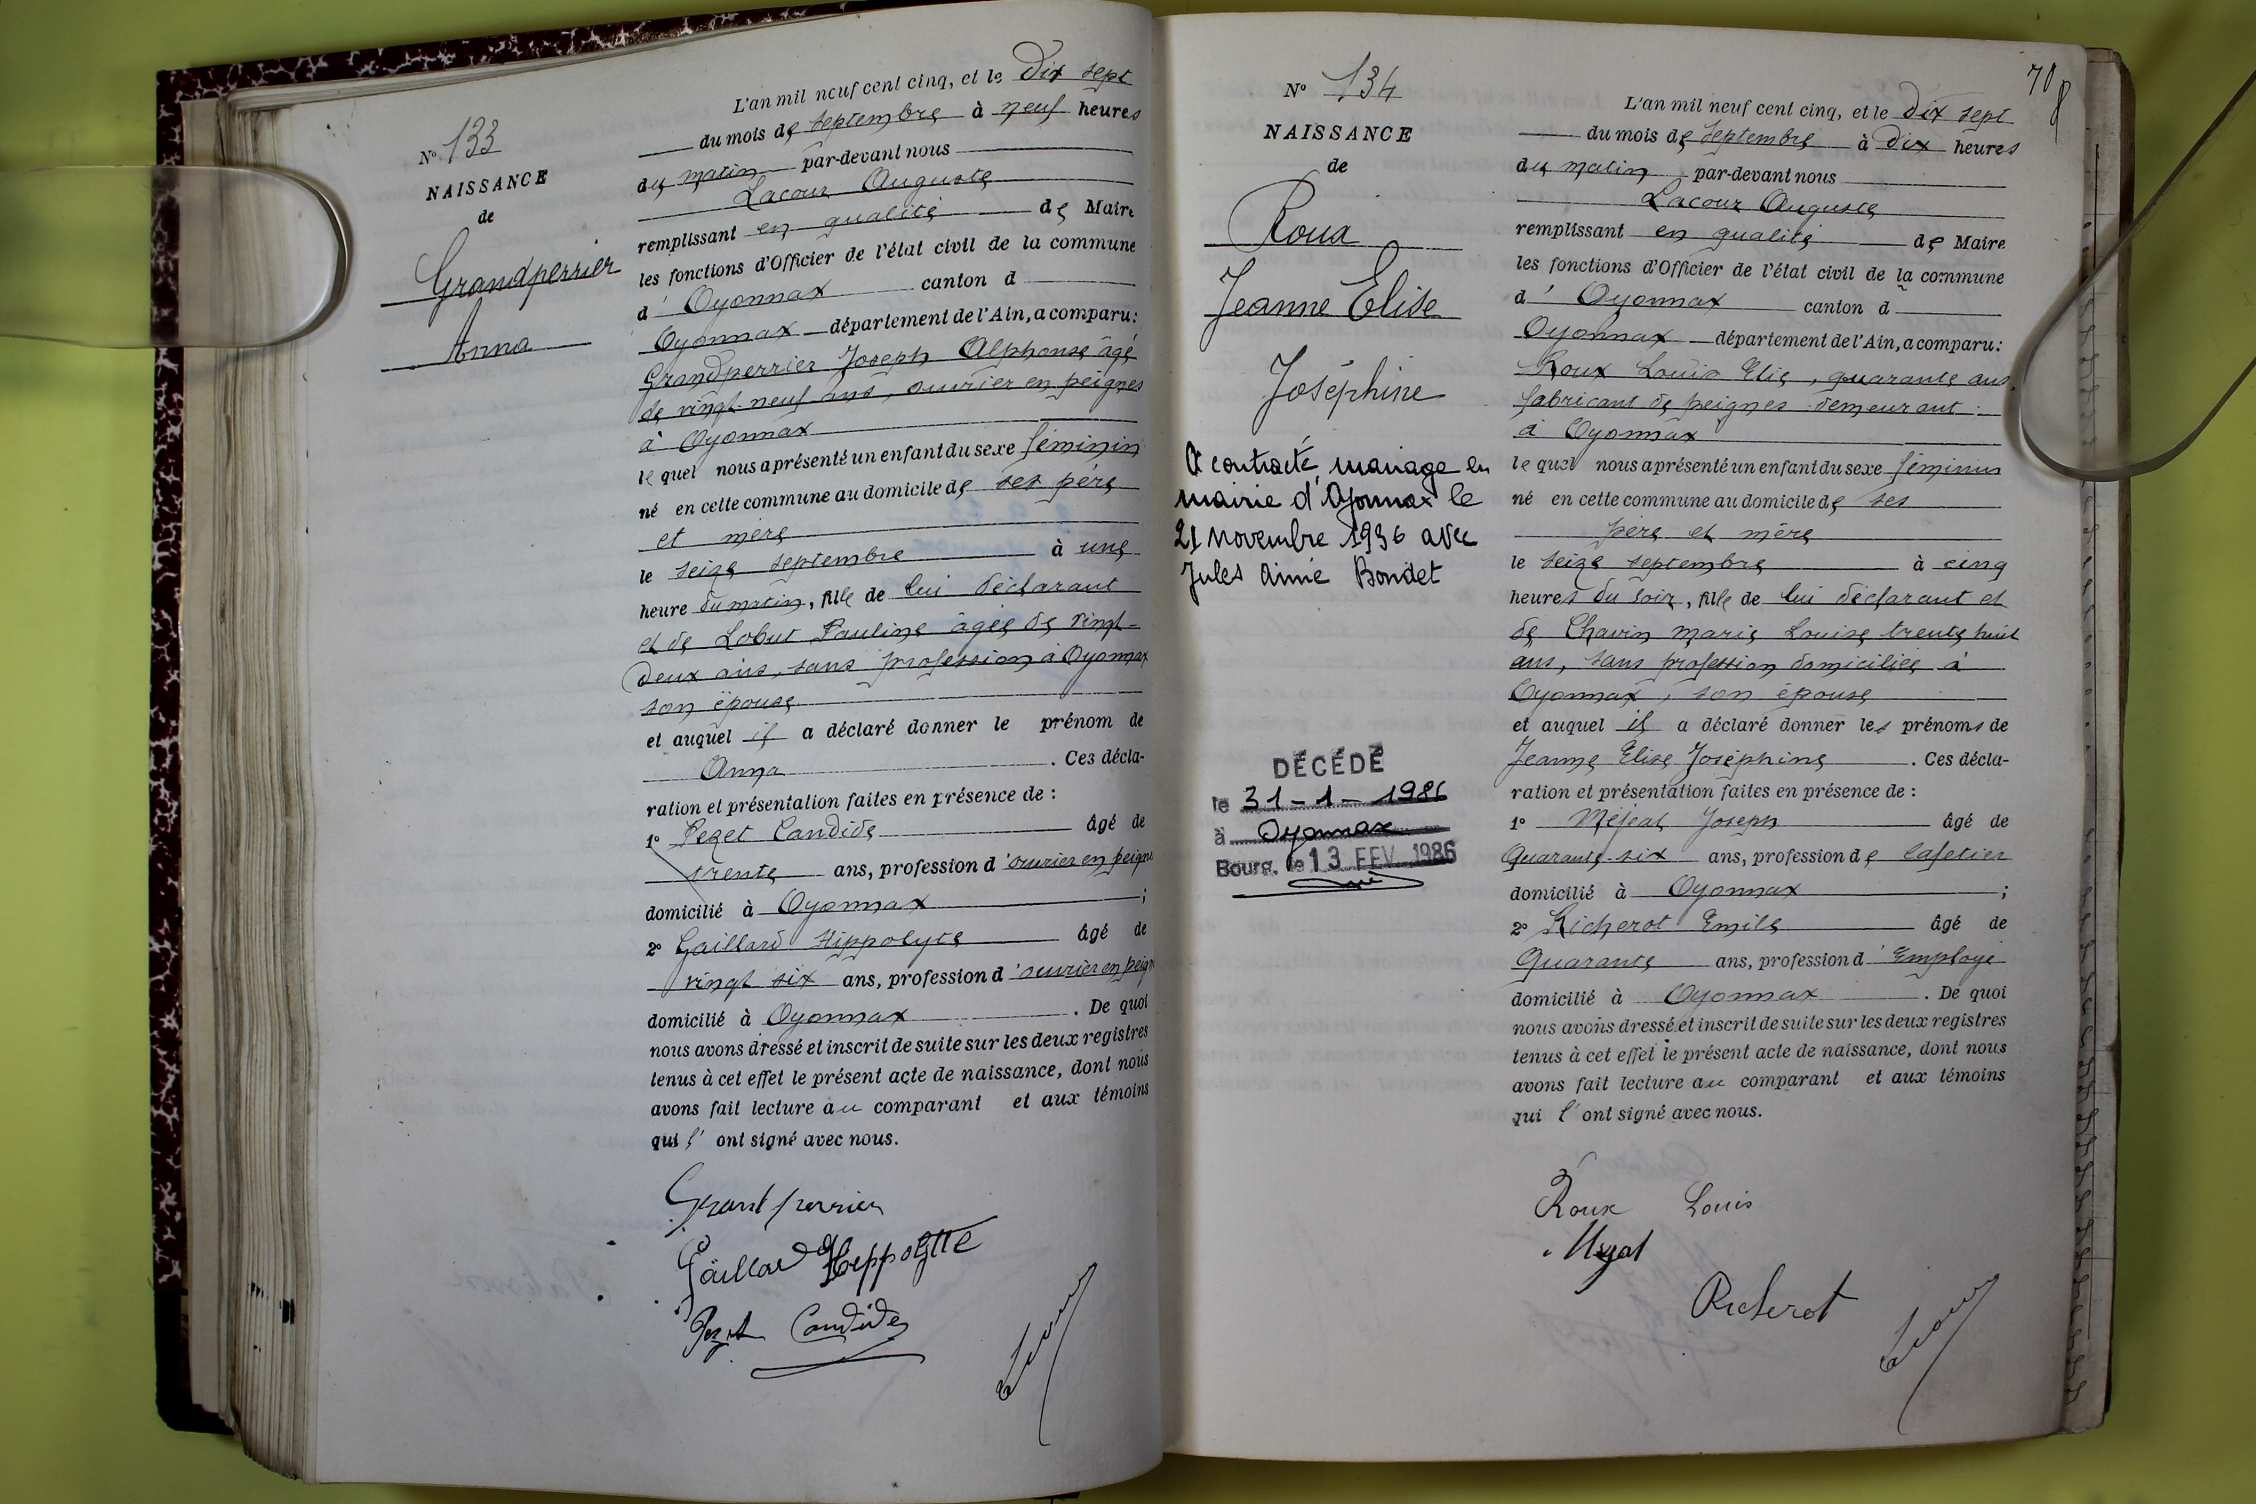 N° 133
NAISSANCE
de
Grandperrier
Anna
L'an mil neuf cent cinq, et le Dix sept
du mois de septembre à neuf heures
du matin par-devant nous
Lacour Auguste
remplissant en qualité de Maire
les fonctions d'Officier de l'état civil de la commune
d' Oyonnax canton d
Oyonnax département de l'Ain, a comparu:
Grandperrier Joseph Alphonse âgé
de vingt-neuf ans, ouvrier en peignes
à Oyonnax
lequel nous a présenté un enfant du sexe féminin
né en cette commune au domicile de ses père
et mère
le seize septembre à une
heure du matin, fille de lui déclarant
et de Lobut Pauline âgée de vingt-
deux ans, sans profession à Oyonnax
son épouse
et auquel il a déclaré donner le prénom de
Anna . Ces décla-
ration et présentation faites en présence de :
1° Pezet Candide âgé de
trente ans, profession d'ouvrier en peigne
domicilié à Oyonnax ;
2° Gaillard Hippolyte âgé de
vingt six ans, profession d'ouvrier en peign
domicilié à Oyonnax . De quoi
nous avons dressé et inscrit de suite sur les deux registres
tenus à cet effet le présent acte de naissance, dont nous
avons fait lecture au comparant et aux témoins
qui l' ont signé avec nous.
Grandperrier
Gaillard Hippolytte
Pezet Candide
70
N° 134
NAISSANCE
de
Roux
Jeanne Elise
Joséphine
A contracté mariage en
mairie d'Oyonnax le
21 novembre 1936 avec
Jules Aimé Bondet
DÉCÉDÉ
le 31-1-1986
à Oyonnax
Bourg, le 13 FEV 1986
L'an mil neuf cent cinq, et le dix sept
du mois de septembre à dix heures
du matin par-devant nous
Lacour Auguste
remplissant en qualité de Maire
les fonctions d'Officier de l'état civil de la commune
d' Oyonnax canton d
Oyonnax département de l'Ain, a comparu:
Roux Louis Elie, quarante ans
fabricant de peignes demeurant
à Oyonnax
lequel nous a présenté un enfant du sexe féminin
né en cette commune au domicile de ses
père et mère
le seize septembre à cinq
heures du soir, fille de lui déclarant et
de Chavin Marie Louise trente huit
ans, sans profession domiciliée à
Oyonnax, son épouse
et auquel il a déclaré donner les prénoms de
Jeanne Elise Joséphine . Ces décla-
ration et présentation faites en présence de :
1° Méjeat Joseph âgé de
Quarante-six ans, profession de cafetier
domicilié à Oyonnax ;
2° Richerot Emile âgé de
Quarante ans, profession d'Employé
domicilié à Oyonnax . De quoi
nous avons dressé et inscrit de suite sur les deux registres
tenus à cet effet le présent acte de naissance, dont nous
avons fait lecture au comparant et aux témoins
qui l' ont signé avec nous.
Roux Louis
Richerot